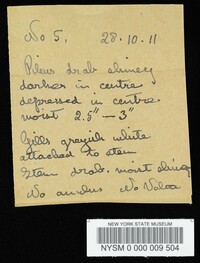 No 5. 28.10.11
Pileus drab slimey
darker in centre
depressed in centre.
moist 2.5" — 3"
Gills greyish white
attached to stem
Stem drab. moist slimy
No annulus No Volva
NEW YORK STATE MUSEUM
NYSM 0 000 009 504